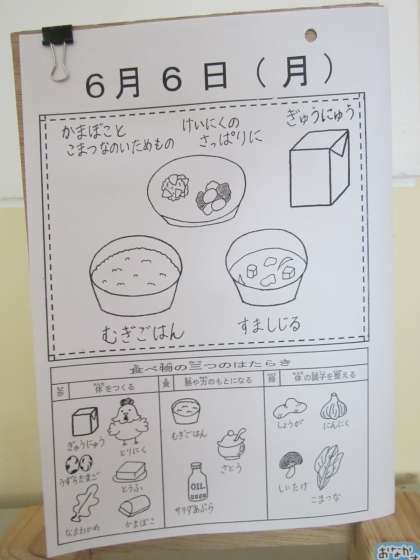 6月6日（月）
かまぼこと
こまつなのいためもの
けいにくの
さっぱりに
ぎゅうにゅう
むぎごはん
すましじる
食べ物の三つのはたらき
体をつくる
熱や力のもとになる
体の調子を整える
ぎゅうにゅう
とりにく
うずらたまご
とうふ
なまわかめ
かまぼこ
むぎごはん
さとう
OIL
サラダあぶら
しょうが
にんにく
しいたけ
こまつな
おなか